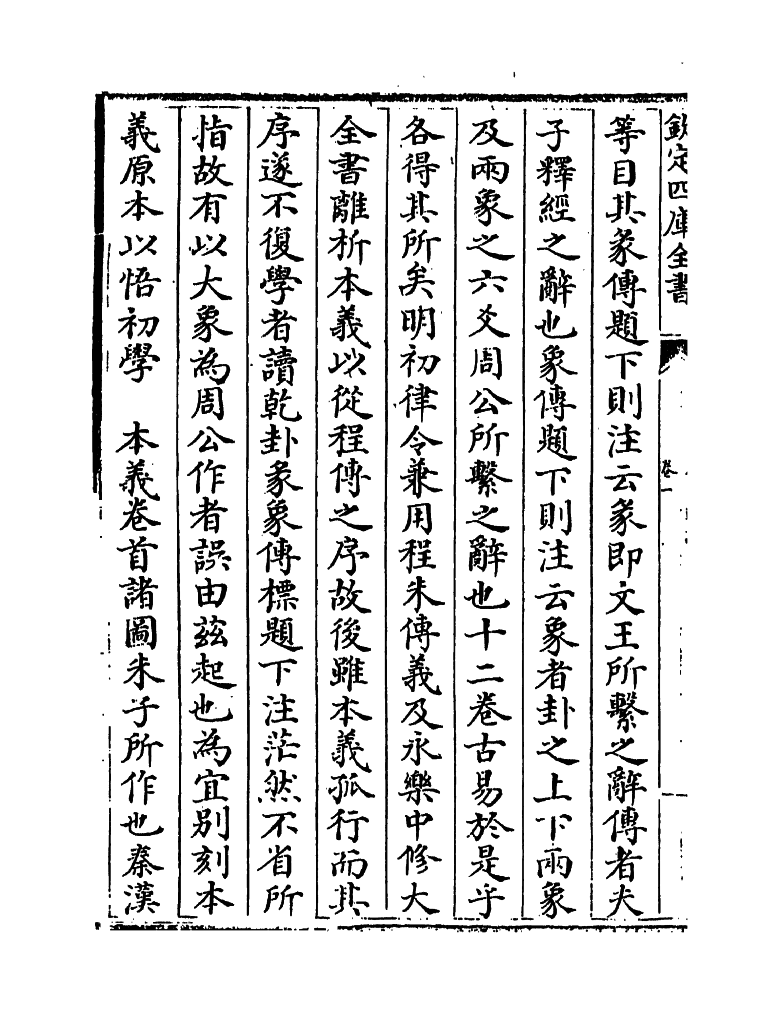 欽定四庫全書
卷一
等目其彖傳題下則注云彖即文王所繫之辭傳者夫
子釋經之辭也象傳題下則注云象者卦之上下兩象
及兩象之六爻周公所繫之辭也十二卷古易於是乎
各得其所矣明初律令兼用程朱傳義及永樂中修大
全書離析本義以從程傳之序故後雖本義孤行而其
序遂不復學者讀乾卦彖象傳標題下注茫然不省所
指故有以大象為周公作者誤由茲起也為宜别刻本
義原本以悟初學　本義卷首諸圖朱子所作也秦漢